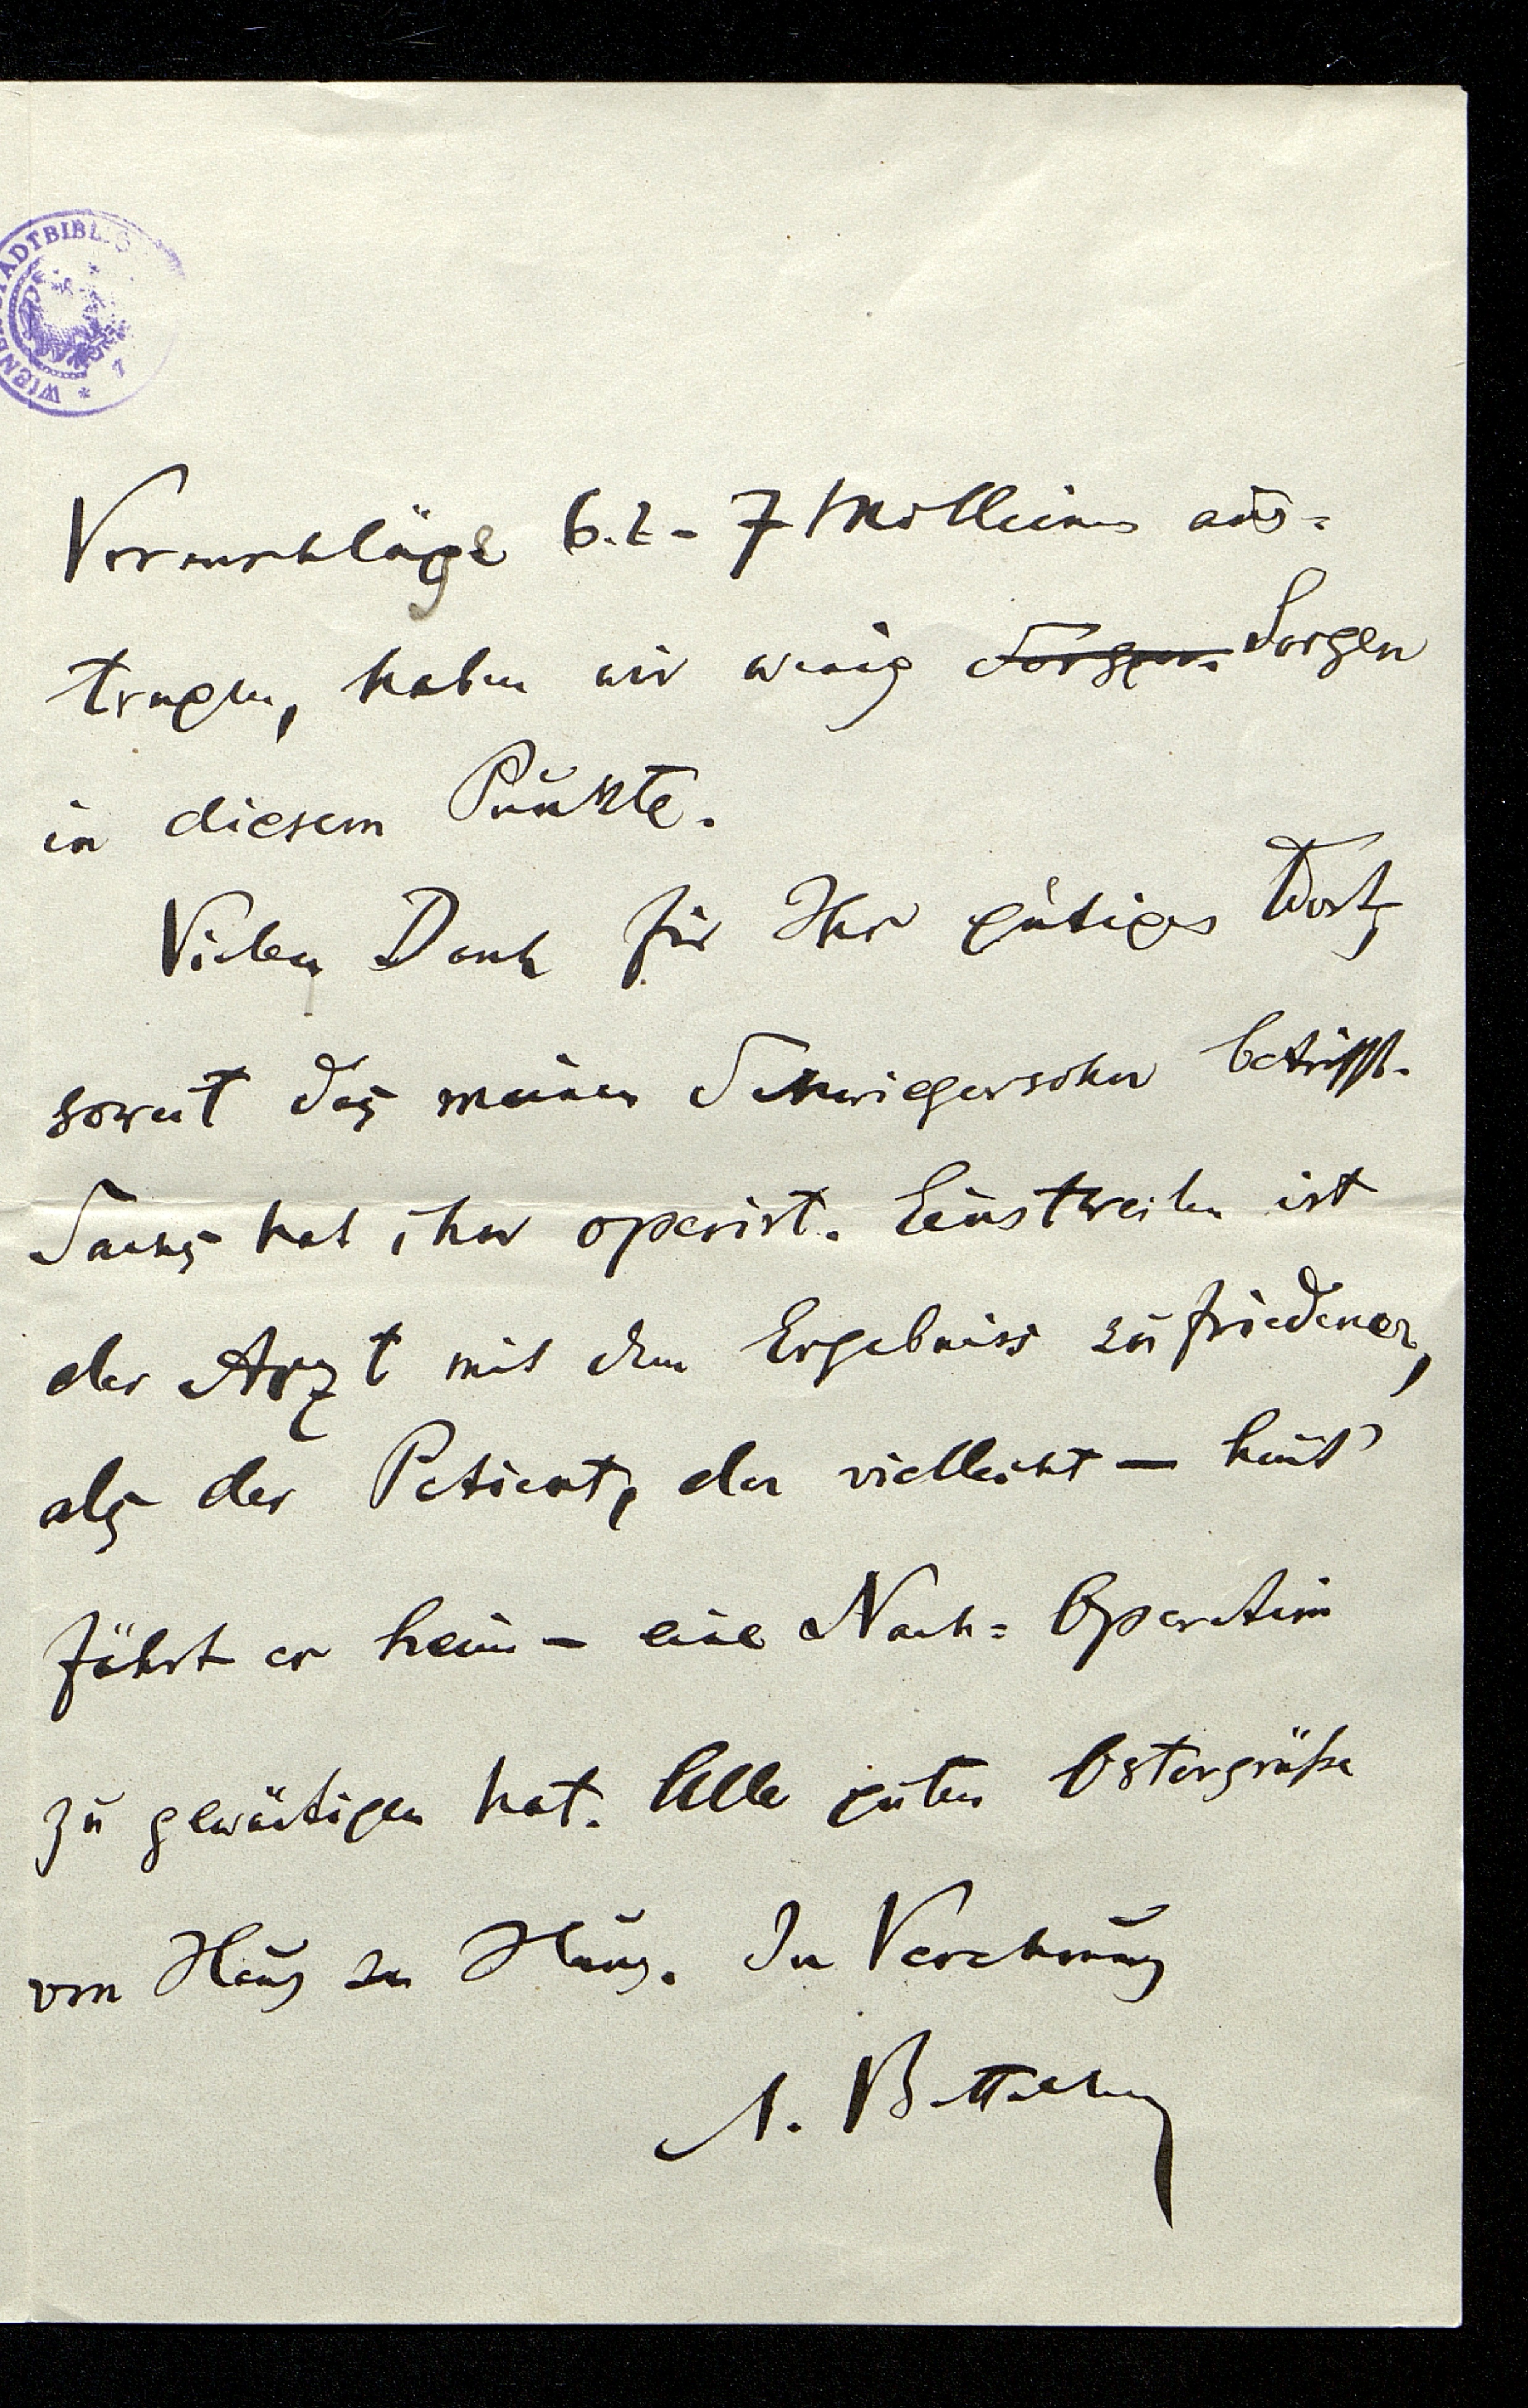 WIENER STADTBIBLIO
Voranschläge 6.2-7 Millionen aus=
tragen, haben wir wenig Sorgen Sorgen
in diesem Punkte.
Vielen Dank für Ihr gütiges Wort,
soweit das meinen Schwiegersohn betrifft.
hat ihn operirt. Einstweilen ist
der Arzt mit dem Ergebniss zufriedener,
als der Patient, der vielleicht — heut'
fährt er heim — eine Nach=Operation
zu gewärtigen hat. Alle guten Ostergrüße
von Haus zu Haus. In Verehrung
A. Bettelheim